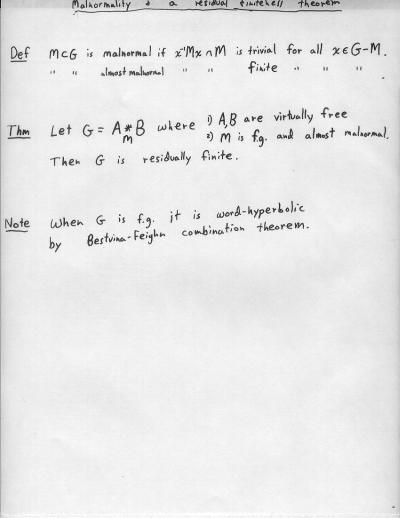 Malnormality & a residual finiteness theorem
Def M⊂G is malnormal if x⁻¹Mx ∩ M is trivial for all x∈G-M.
" " almost malnormal " " finite " " "
Thm Let G = A *_M B where 1) A,B are virtually free
2) M is f.g. and almost malnormal.
Then G is residually finite.
Note When G is f.g. it is word-hyperbolic
by Bestvina-Feighn combination theorem.